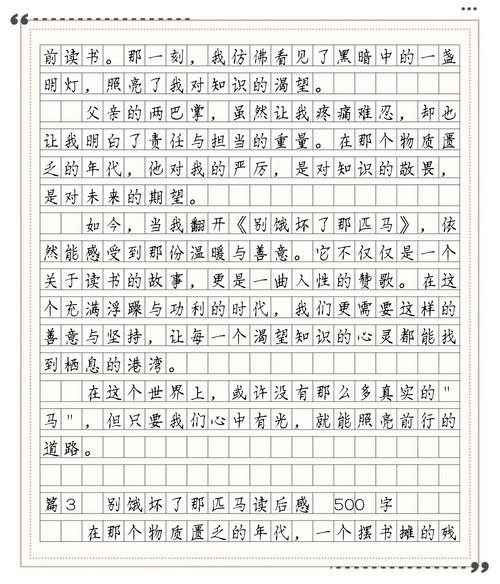 前读书。那一刻，我仿佛看见了黑暗中的一盏
明灯，照亮了我对知识的渴望。
父亲的两巴掌，虽然让我疼痛难忍，却也
让我明白了责任与担当的重量。在那个物质匮
乏的年代，他对我的严厉，是对知识的敬畏，
是对未来的期望。
如今，当我翻开《别饿坏了那匹马》，依
然能感受到那份温暖与善意。它不仅仅是一个
关于读书的故事，更是一曲人性的赞歌。在这
个充满浮躁与功利的时代，我们更需要这样的
善意与坚持，让每一个渴望知识的心灵都能找
到栖息的港湾。
在这个世界上，或许没有那么多真实的"
马"，但只要我们心中有光，就能照亮前行的
道路。
篇3 别饿坏了那匹马读后感 500 字
在那个物质匮乏的年代，一个摆书摊的残